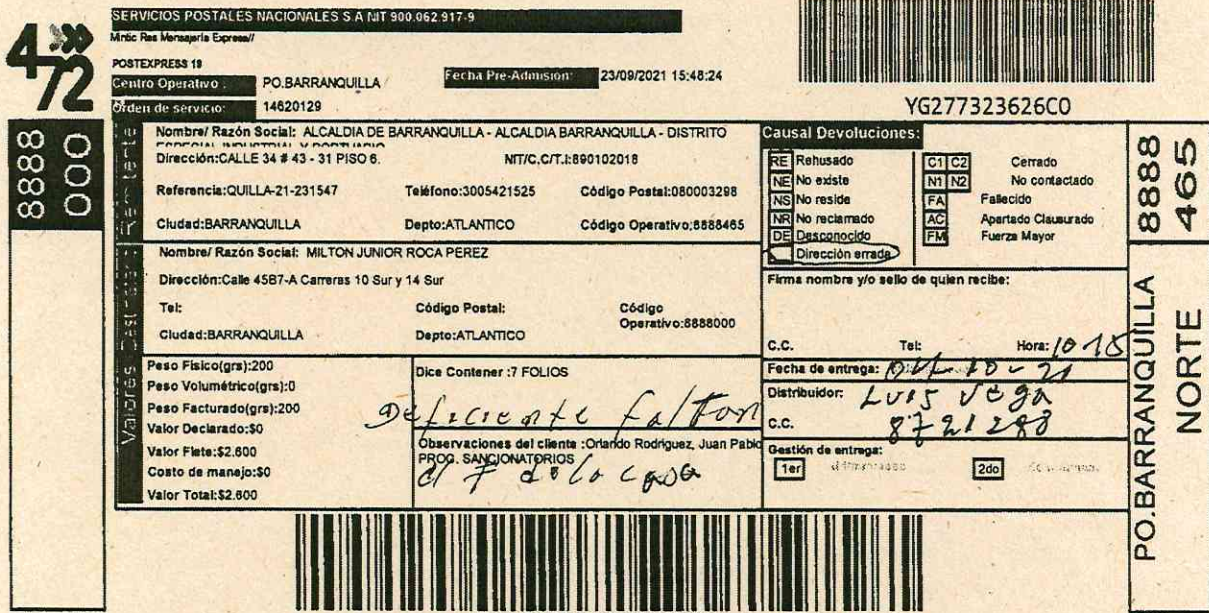 SERVICIOS POSTALES NACIONALES S.A NIT 900.062.917-9
Mintic Res Mensajería Express//
4-72
POSTEXPRESS 19
Centro Operativo : PO.BARRANQUILLA
Fecha Pre-Admisión: 23/09/2021 15:48:24
Orden de servicio: 14620129
YG277323626CO
8888
000
Remitente
Nombre/ Razón Social: ALCALDIA DE BARRANQUILLA - ALCALDIA BARRANQUILLA - DISTRITO
ESPECIAL INDUSTRIAL Y PORTUARIO
Dirección:CALLE 34 # 43 - 31 PISO 6. NIT/C.C/T.I:890102018
Referencia:QUILLA-21-231547 Teléfono:3005421525 Código Postal:080003298
Ciudad:BARRANQUILLA Depto:ATLANTICO Código Operativo:8888465
Destinatario
Nombre/ Razón Social: MILTON JUNIOR ROCA PEREZ
Dirección:Calle 45B7-A Carreras 10 Sur y 14 Sur
Tel: Código Postal: Código Operativo:8888000
Ciudad:BARRANQUILLA Depto:ATLANTICO
Valores
Peso Físico(grs):200
Peso Volumétrico(grs):0
Peso Facturado(grs):200
Valor Declarado:$0
Valor Flete:$2.600
Costo de manejo:$0
Valor Total:$2.600
Dice Contener :7 FOLIOS
Deficiente falton
Observaciones del cliente :Orlando Rodriguez, Juan Pablo
PROG. SANCIONATORIOS
el # de la casa
Causal Devoluciones:
RE Rehusado C1 C2 Cerrado
NE No existe N1 N2 No contactado
NS No reside FA Fallecido
NR No reclamado AC Apartado Clausurado
DE Desconocido FM Fuerza Mayor
Dirección errada
Firma nombre y/o sello de quien recibe:
C.C. Tel: Hora: 10 15
Fecha de entrega: 04-10-21
Distribuidor: Luis Vega
C.C. 8721288
Gestión de entrega:
1er 2do
8888
465
PO.BARRANQUILLA
NORTE